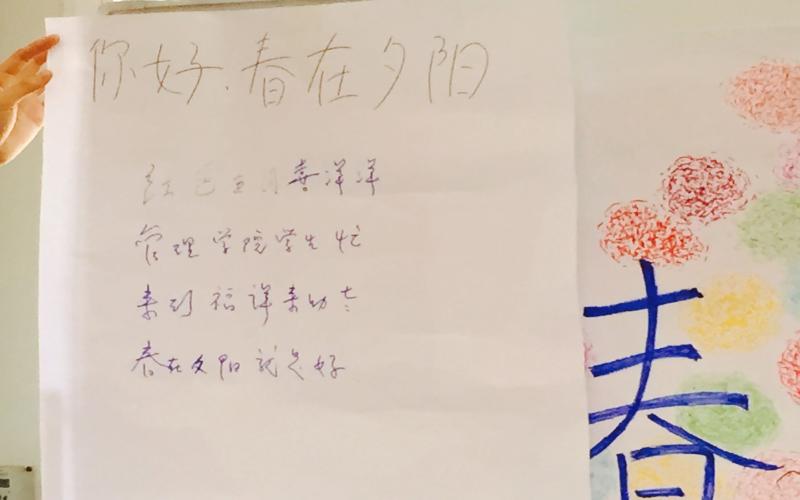 你好.春在夕阳
红色五月喜洋洋
管理学院学生忙
来到福祥来助兴
春在夕阳就是好
春